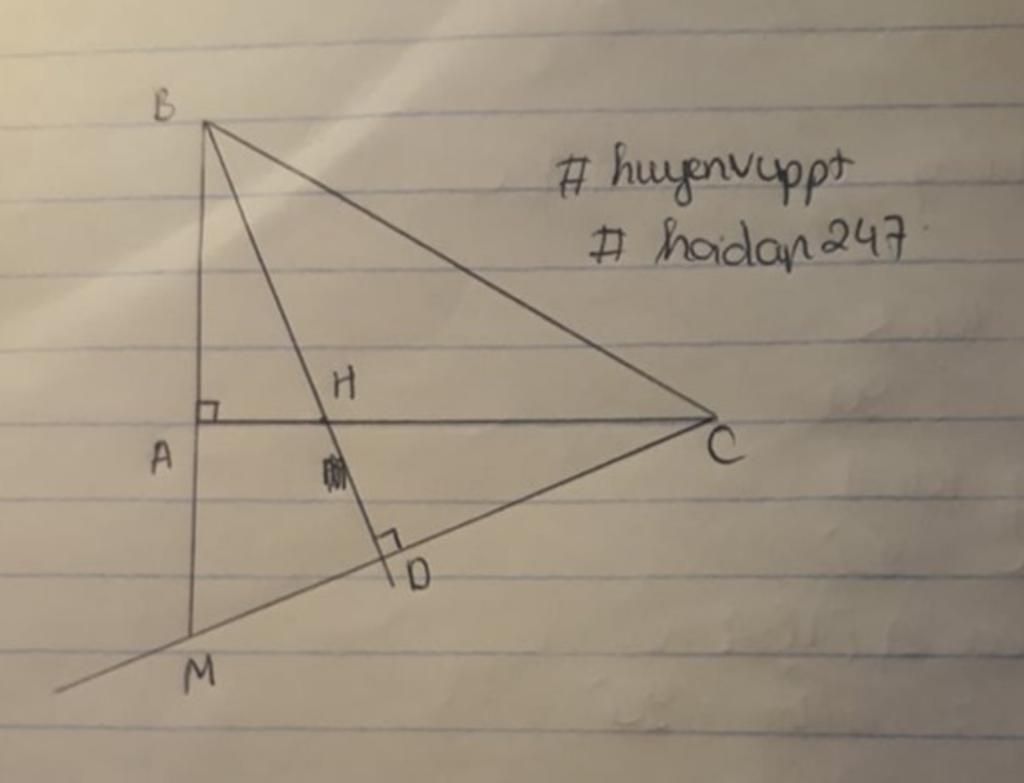 B
# huyenvuppt
# hoidap247
H
A
C
D
M